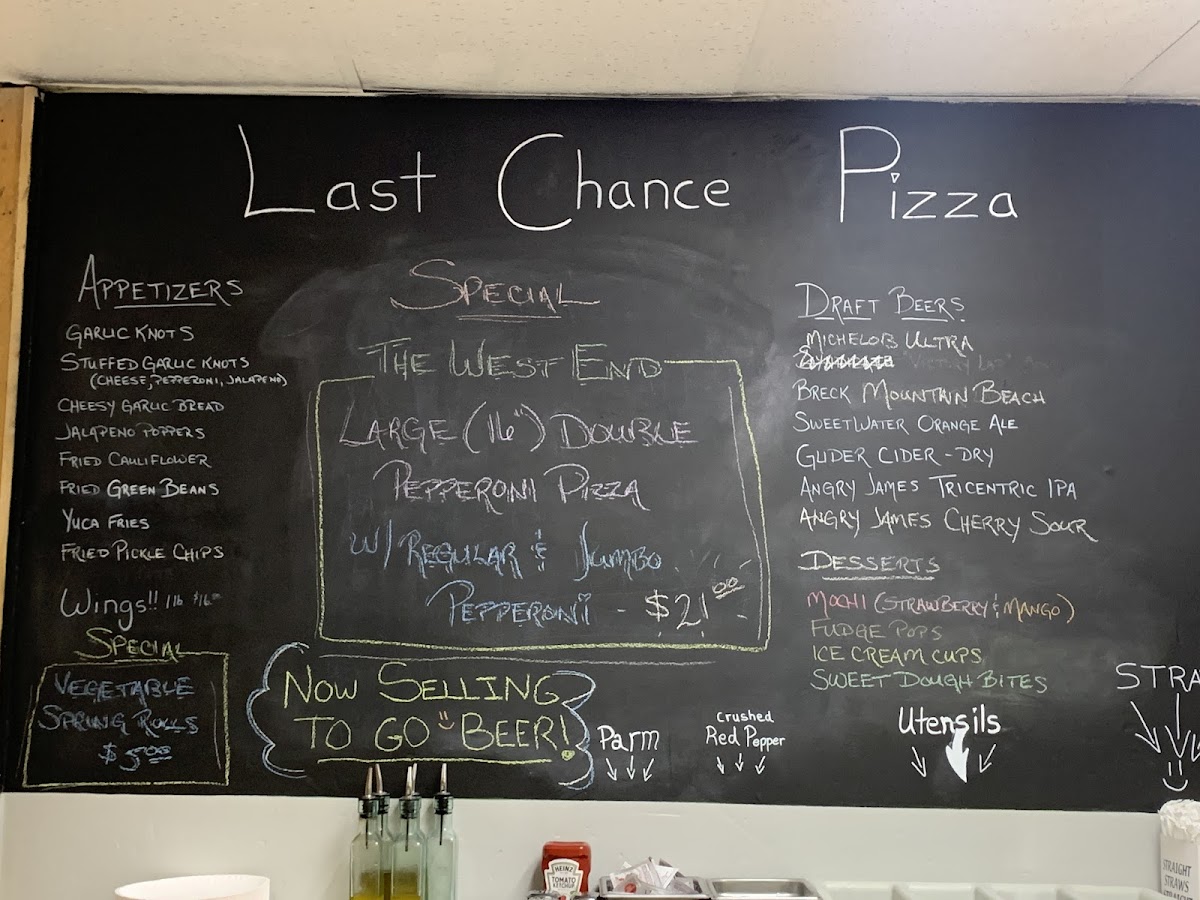 Last Chance Pizza
APPETIZERS
GARLIC KNOTS
STUFFED GARLIC KNOTS
(CHEESE, PEPPERONI, JALAPENO)
CHEESY GARLIC BREAD
JALAPENO POPPERS
FRIED CAULIFLOWER
FRIED GREEN BEANS
YUCA FRIES
FRIED PICKLE CHIPS
Wings!! 1 lb $16
SPECIAL
VEGETABLE
SPRING ROLLS
$5.00
SPECIAL
THE WEST END
LARGE (16") DOUBLE
PEPPERONI PIZZA
W/ REGULAR & JUMBO
PEPPERONI - $21.00
NOW SELLING
TO GO BEER!
DRAFT BEERS
MICHELOB ULTRA
BRECK MOUNTAIN BEACH
SWEETWATER ORANGE ALE
GLIDER CIDER - DRY
ANGRY JAMES TRICENTRIC IPA
ANGRY JAMES CHERRY SOUR
DESSERTS
MOCHI (STRAWBERRY & MANGO)
FUDGE POPS
ICE CREAM CUPS
SWEET DOUGH BITES
Parm
Crushed
Red Pepper
Utensils
STRA
HEINZ
TOMATO
KETCHUP
STRAIGHT
STRAWS